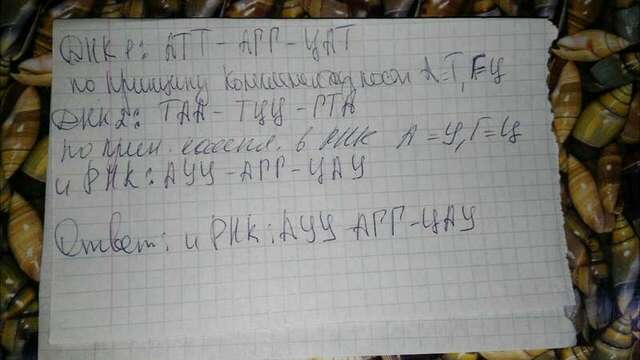 ДНК 1: АТТ-АГГ-ЦАТ
по принципу комплементарности А=Т, Г=Ц
ДНК 2: ТАА-ТЦЦ-ГТА
по прин. в РНК А=У, Г=Ц
и РНК: АУУ-АГГ-ЦАУ
Ответ: и РНК: АУУ-АГГ-ЦАУ